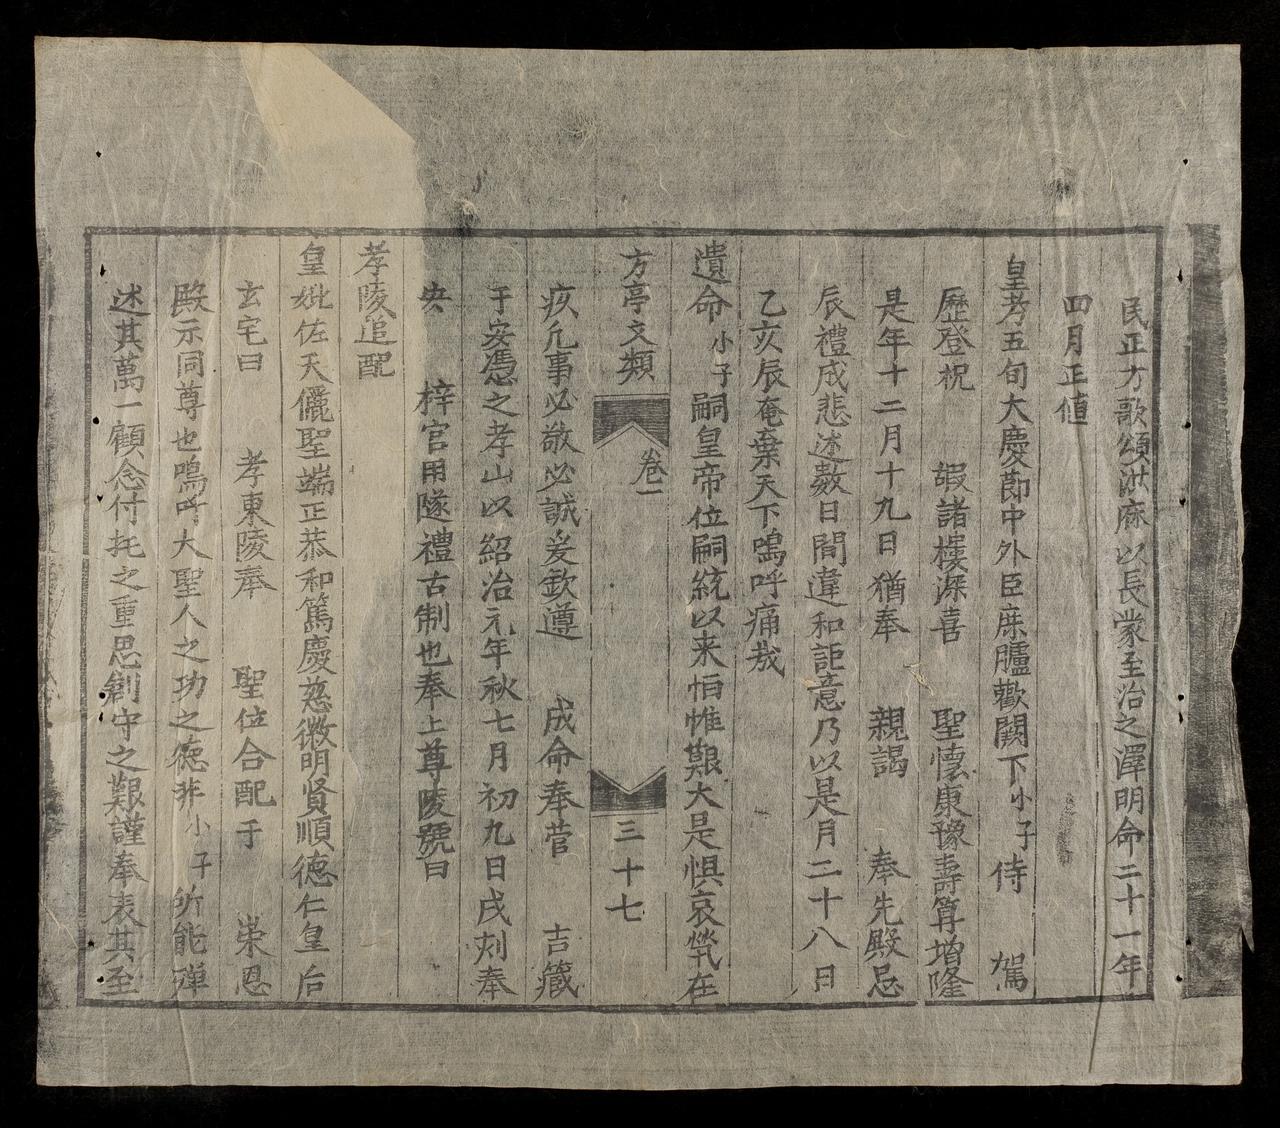 民正方歌頌洪庥以長蒙至治之澤明命二十一年
四月正値
皇考五旬大慶節中外臣庶臚歡闕下小子侍 駕
歷登祝 嘏諸樓深喜 聖懷康豫壽筭增隆
是年十二月十九日猶奉 親謁 奉先殿忌
辰禮成悲述數日間違和詎意乃以是月二十八日
乙亥辰奄棄天下嗚呼痛哉
遺命小子嗣皇帝位嗣統以来怕惟艱大是惧哀煢在
方亭文類 卷一 三十七
疚凢事必敬必誠爰欽遵 成命奉營 吉藏
于安憑之孝山以紹治元年秋七月初九日戌刻奉
安 梓宮用隧禮古制也奉上尊陵號曰
孝陵追配
皇妣佐天儷聖端正恭和篤慶慈徽明賢順德仁皇后
玄宅曰 孝東陵奉 聖位合配于 崇恩
殿示同尊也嗚呼大聖人之功之德非小子所能殫
述其萬一顧念付托之重思創守之艱謹奉表其至